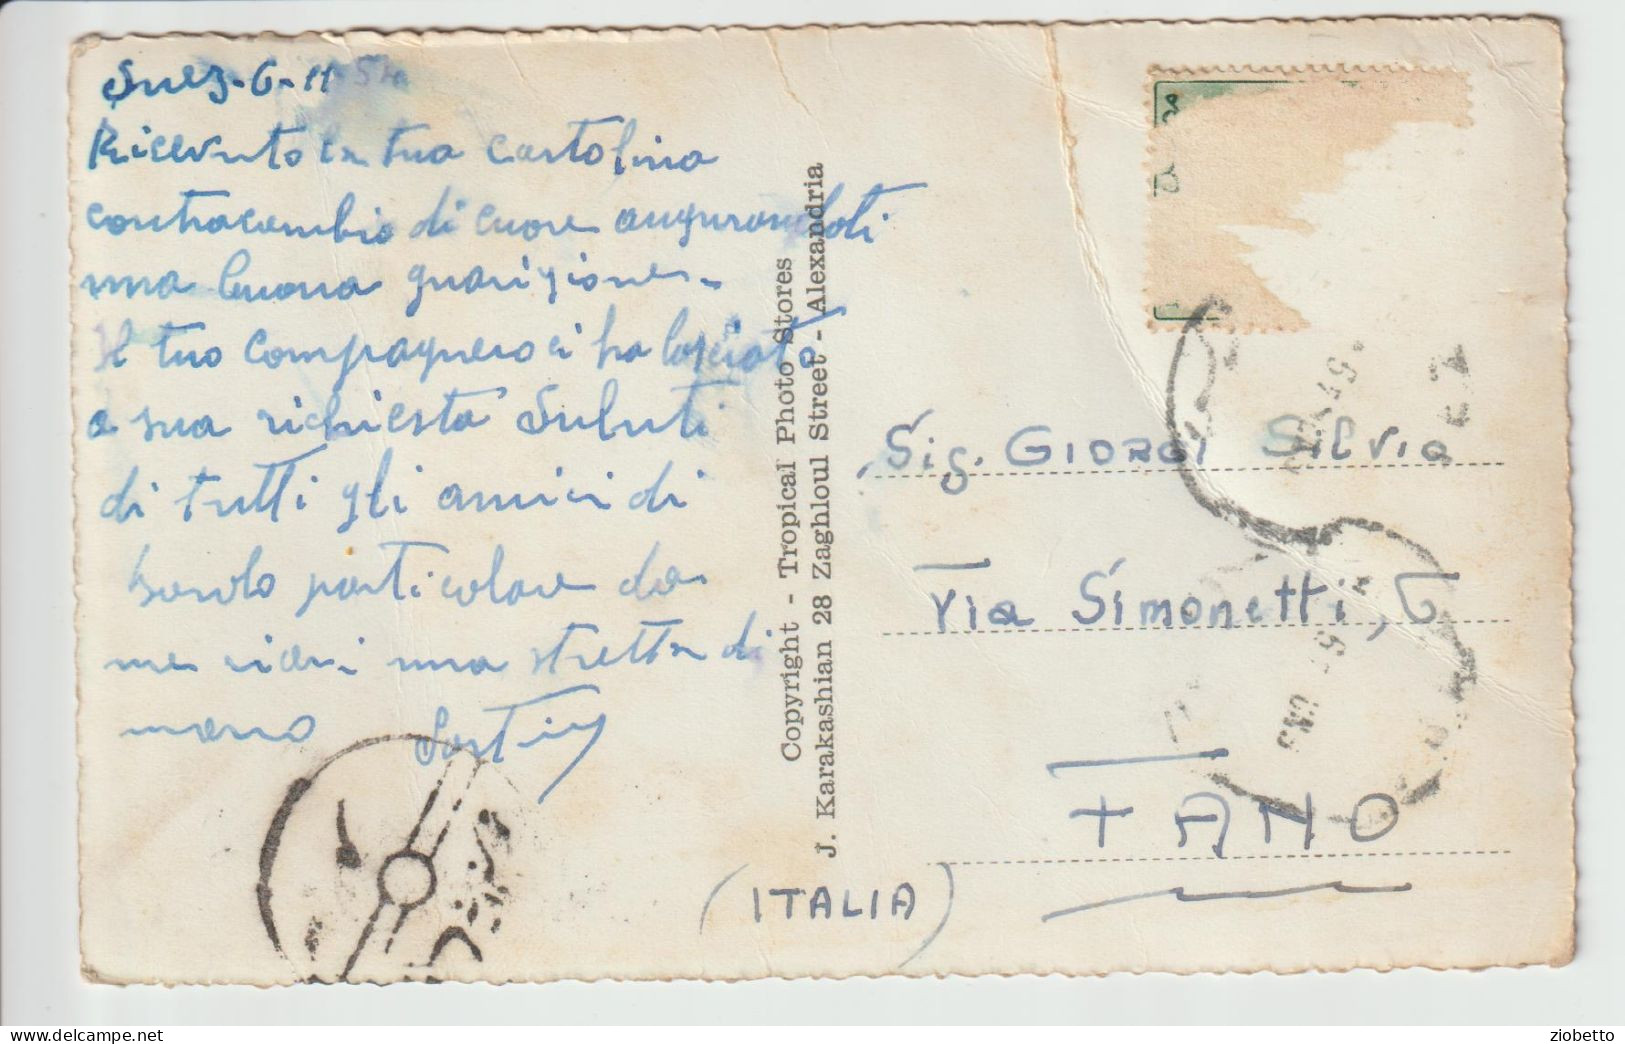 Suez - 6 - 11
Ricevuto la tua cartolina
contracambio di cuore augurandoti
una buona guarigione -
Il tuo compagnero ci ha lasciato
a sua richiesta Saluti
di tutti gli amici di
bordo particolare da
me ricevi una stretta di
mano
Copyright - Tropical Photo Stores
J. Karakashian 28 Zaghloul Street - Alexandria
Sig. GIORGI Silvio
Via Simonetti, 6
FANO
(ITALIA)
ziobetto